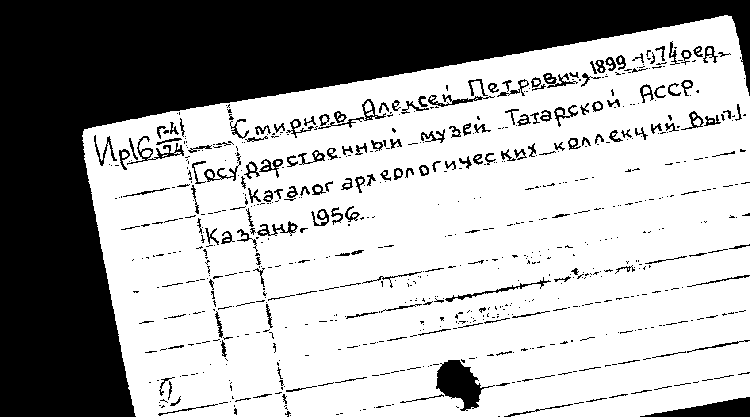 Смирнов, Алексей Петрович, 1899-1974 ред.
Ир16 Г-4/174
Государственный музей Татарской АССР.
Каталог археологических коллекций. Вып.1.
Казань, 1956.
2